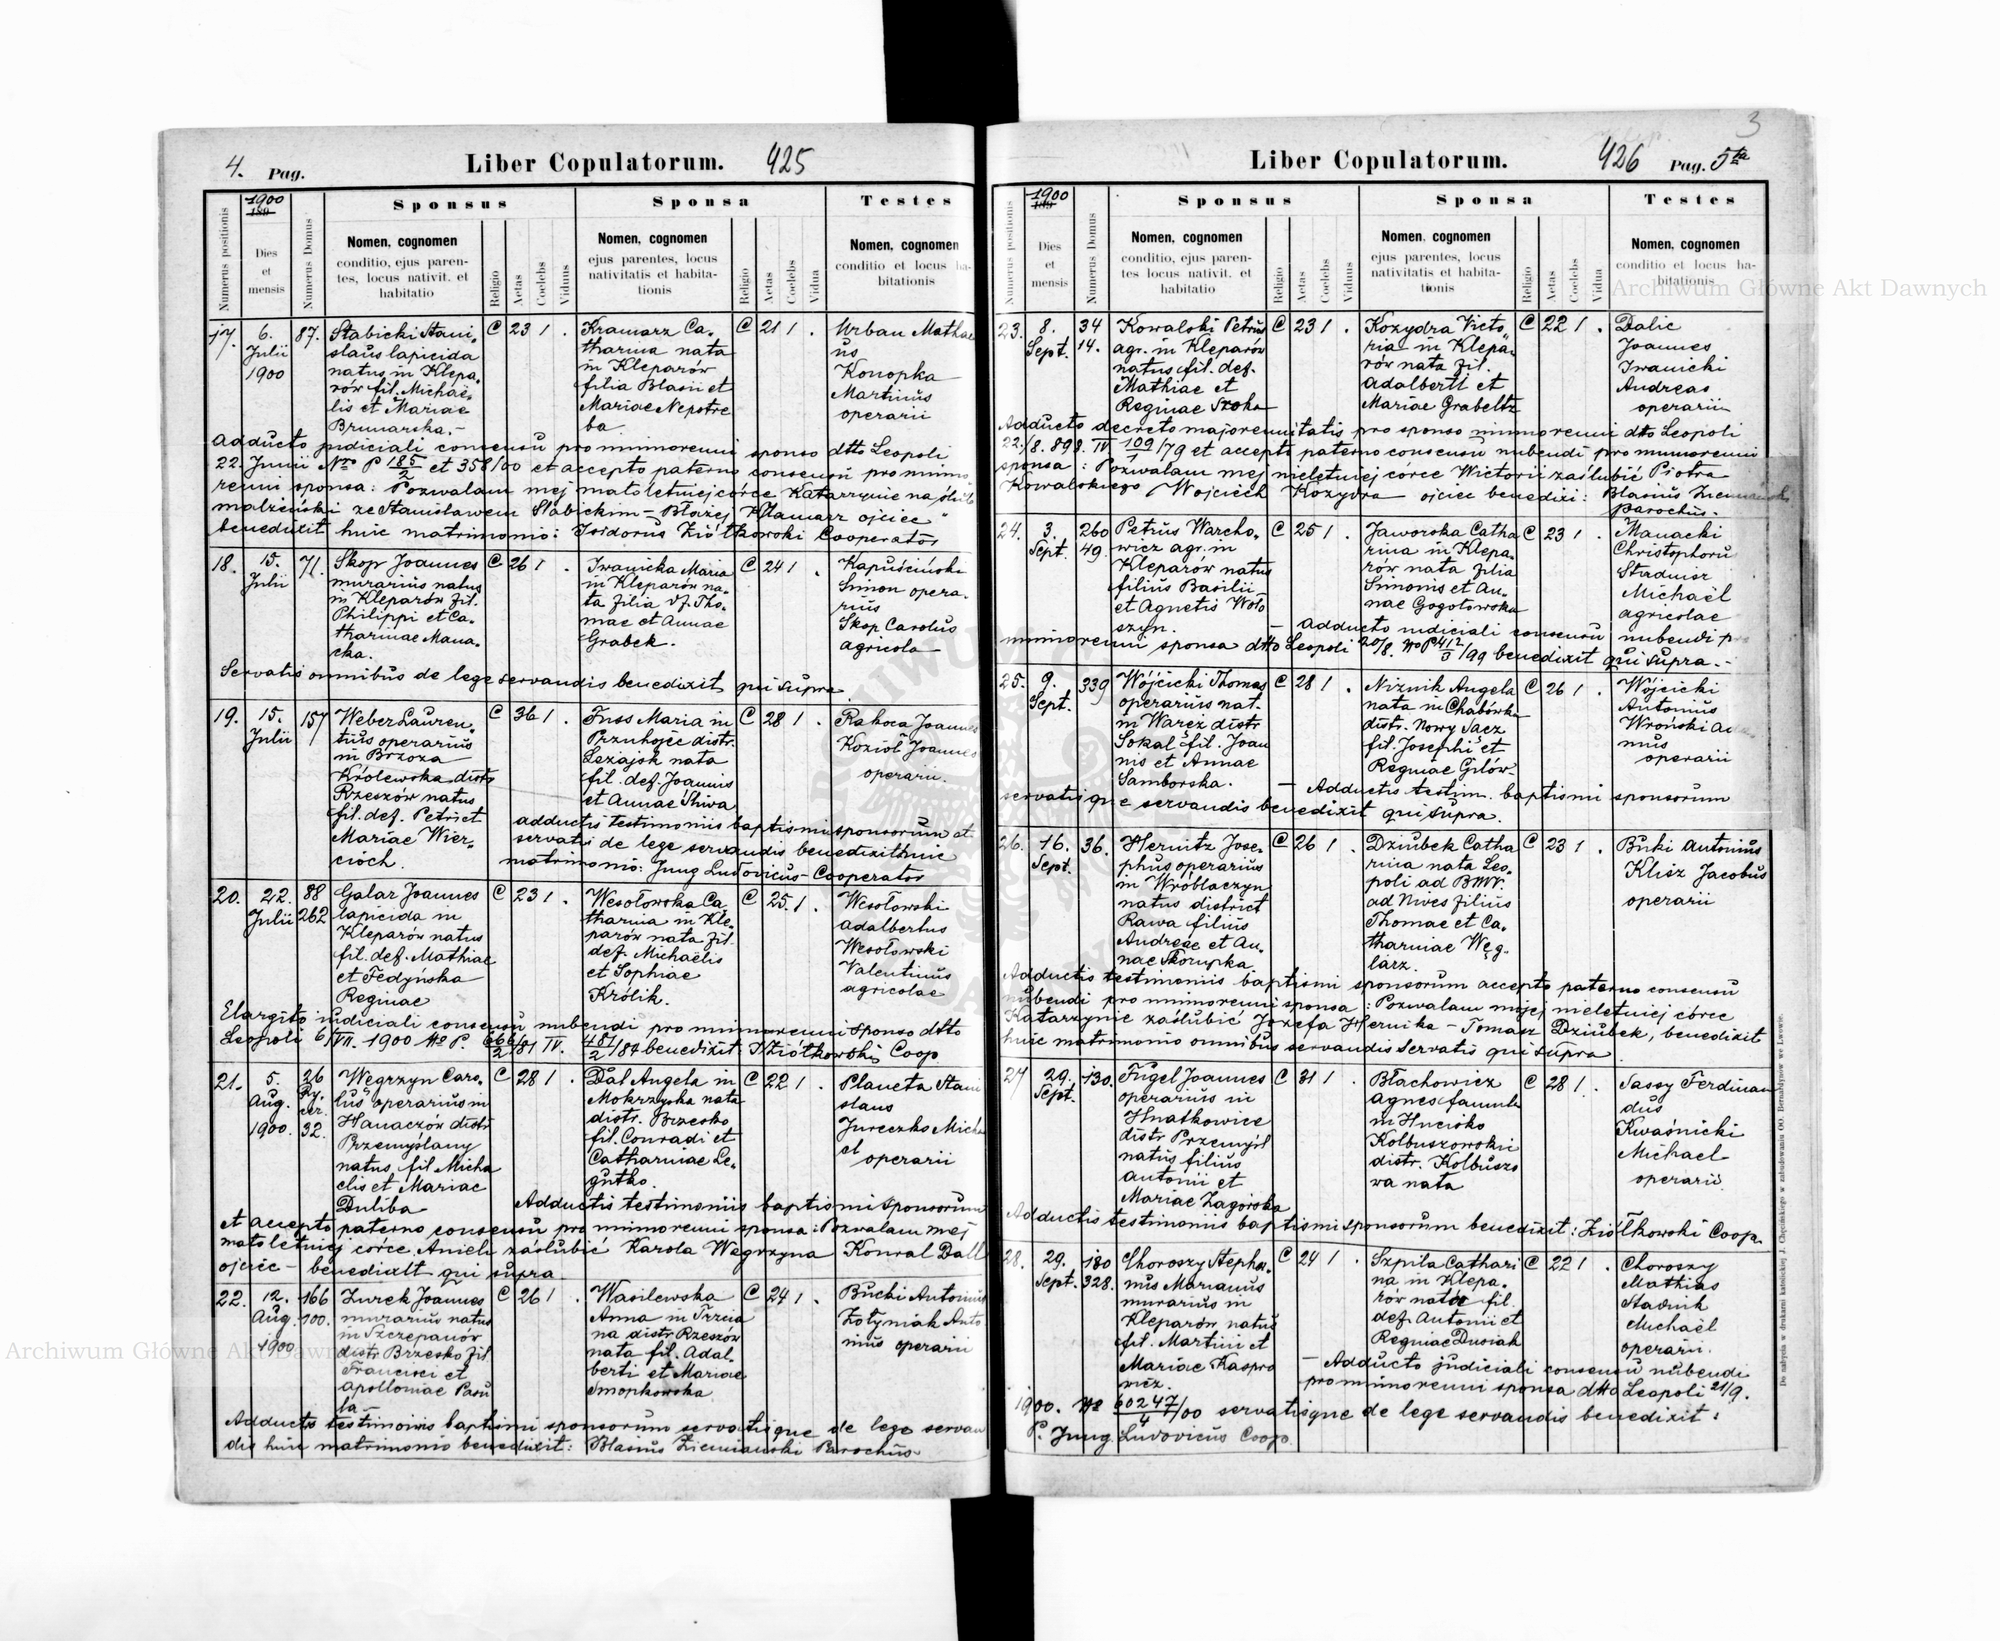 4. Pag. Liber Copulatorum. 425
Numerus positionis
1900
189
Dies
et
mensis
Numerus Domus
Sponsus
Nomen, cognomen
conditio, ejus paren-
tes, locus nativit. et
habitatio
Religio
Aetas
Coelebs
Viduus
Sponsa
Nomen, cognomen
ejus parentes, locus
nativitatis et habita-
tionis
Religio
Aetas
Coelebs
Vidua
Testes
Nomen, cognomen
conditio et locus ha-
bitationis
17. 6. Julii 1900 87.
Słabicki Stani-
slaus lapicida
natus in Klepa-
rów fil. Michaë-
lis et Mariae
Brunarska.-
C 23 1 .
Kramarz Ca-
tharina nata
in Kleparów
filia Blasii et
Mariae Nepotre
ba
C 21 1 .
Urban Mathae
us
Konopka
Martinus
operarii
Adducto judiciali consensu pro minorenni sponso dtto Leopoli
22. Junii No P 185/2 et 358/00 et accepto paterno consensu pro mino
renni sponsa: Pozwalam mej małoletniej córce Katarzynie na ślub
małżeński ze Stanisławem Słabickim - Błażej Kramarz ojciec"
benedixit huic matrimonio: Isidorus Ziółkowski Cooperator
18. 15. Julii 71.
Skop Joannes
murarius natus
in Kleparów fil.
Philippi et Ca-
tharinae Mana-
cka.
C 26 1 .
Iwanicka Maria
in Kleparów na-
ta filia df. Tho-
mae et Annae
Grabek.
C 24 1 .
Kapuściński
Simon opera-
rius
Skop Carolus
agricola
Servatis omnibus de lege servandis benedixit qui supra
19. 15. Julii 157
Weber Lauren-
tius operarius
in Brzoza
Królewska distr
Rzeszów natus
fil. def. Petri et
Mariae Wier-
cioch.
C 36 1 .
Fuss Maria in
distr.
Leżajsk nata
fil. def. Joannis
et Annae Śliwa
C 28 1 .
Rakoca Joannes
Kozioł Joannes
operarii.
adductis testimoniis baptismi sponsorum et
servatis de lege servandis benedixit huic
matrimonio: Jung Ludovicus - Cooperator
20. 22. Julii 88 262
Galar Joannes
lapicida in
Kleparów natus
fil. def. Mathiae
et Fedyńska
Reginae
C 23 1 .
Wesołowska Ca
tharina in Kle-
parów nata fil.
def. Michaëlis
et Sophiae
Królik.
C 25. 1 .
Wesołowski
adalbertus
Wesołowski
Valentinus
agricolae
Elargito judiciali consensu nubendi pro minorenni sponso dtto
Leopoli 6/VII. 1900 No P. 666/2/81 IV. 481/2/84 benedixit: I Ziółkowski Coop
21. 5. Aug. 1900. 26 32.
Węgrzyn Caro-
lus operarius in
Hanaczów distr
Przemyślany
natus fil Micha
elis et Mariae
Duliba
C 28 1 .
Dał Angela in
Mokrzyska nata
distr. Brzesko
fil. Conradi et
Catharinae Le-
gutko.
C 22 1 .
Planeta Stani
slaus
Jureczko Micha
el
operarii
Adductis testimoniis baptismi sponsorum
et accepto paterno consensu pro minorenni sponsa: Pozwalam mej
małoletniej córce Anieli zaślubić Karola Węgrzyna Konrad Dall
ojciec - benedixit qui supra
22. 12. Aug. 1900 166 100.
Żurek Joannes
murarius natus
in Szczepanów
distr. Brzesko fil.
Francisci et
Apolloniae Pasu
la -
C 26 1 .
Wasilewska
Anna in Trzcia
na distr Rzeszów
nata fil. Adal-
berti et Mariae
Smopkowska
C 24 1 .
Bucki Antonius
Żołyniak Anto
nius operarii
Adductis testimoniis baptismi sponsorum servatisque de lege servan
dis huic matrimonio benedixit: Blasius Ziemiański Parochus
3
Liber Copulatorum. 426 Pag. 5ta
Numerus positionis
1900
189
Dies
et
mensis
Numerus Domus
Sponsus
Nomen, cognomen
conditio, ejus paren-
tes locus nativit. et
habitatio
Religio
Aetas
Coelebs
Viduus
Sponsa
Nomen, cognomen
ejus parentes, locus
nativitatis et habita-
tionis
Religio
Aetas
Coelebs
Vidua
Testes
Nomen, cognomen
conditio et locus ha-
bitationis
23. 8. Sept. 34 14.
Kowalski Petrus
agr. in Kleparów
natus fil. def.
Mathiae et
Reginae Szoka
C 23 1 .
Kozydra Victo
ria in Klepa-
rów nata fil.
adalberti et
Mariae Grabeltz
C 22 1 .
Dalic
Joannes
Iwanicki
Andreas
operarii
Adducto decreto majorennitatis pro sponso minorenni dtto Leopoli
22./8. 898. IV 109/1/79 et accepto paterno consensu nubendi pro minorenni
sponsa: Pozwalam mej nieletniej córce Wictorii zaślubić Piotra
Kowalskiego Wojciech Kozydra ojciec benedixi: Blasius Ziemiański
parochus.
24. 3. Sept. 260 49.
Petrus Warcho-
wicz agr. in
Kleparow natus
filius Basilii
et Agnetis Woło
szyn.
C 25 1 .
Jaworska Catha
rina in Klepa-
rów nata filia
Simonis et An-
nae Gogotowska
C 23 1 .
Manacki
Christophorus
Stadnisz
Michaël
agricolae
- Adducto judiciali consensu nubendi pro
minorenni sponsa dtto Leopoli 20/8. No P 412/3/99 benedixit qui supra.-
25. 9. Sept. 339
Wójcicki Thomas
operarius nat.
in Waręż distr
Sokal fil. Joan
nis et Annae
Samborska.
C 28 1 .
Niznik Angela
nata in Chabówka
distr. Nowy Sącz
fil. Josephi et
Reginae Gilów-
C 26 1 .
Wójcicki
Antonius
Wroński
operarii
- Adductis testim. baptismi sponsorum
servatisque servandis benedixit qui supra.
26. 16. Sept. 36.
Hernitz Jose-
phus operarius
in Wróblaczyn
natus district
Rawa filius
Andreae et An-
nae Skorupka
C 26 1 .
Dziubek Catha
rina nata Leo-
poli ad BMV.
ad Nives filius
Thomae et Ca-
tharinae Węg-
larz.
C 23 1 .
Bucki Antonius
Klisz Jacobus
operarii
Adductis testimoniis baptismi sponsorum accepto paterno consensu
nubendi pro minorenni sponsa: Pozwalam mojej nieletniej córce
Katarzynie zaślubić Józefa Hernika - Tomasz Dziubek, benedixit
huic matrimonio omnibus servandis servatis qui supra
27 29. Sept. 130.
Fugel Joannes
operarius in
Hnatkowice
distr Przemyśl
natus filius
Antonii et
Mariae Zagórska
C 31 1 .
Błachowicz
Agnes famula
in Hucisko
Kolbuszowskii
distr. Kolbuszo
wa nata
C 28 1 .
Sassy Ferdinan
dus
Kwaśnicki
Michael
operarii
Adductis testimoniis baptismi sponsorum benedixit: Ziółkowski Coop.
28. 29. Sept. 180 328.
Choroszy Stepha-
nus Marianus
murarius in
Kleparów natus
fil. Martini et
Mariae Kaspro
wicz.
C 24 1 .
Szpila Cathari
na in Klepa-
rów nata fil.
def. Antonii et
Reginae Dusiak
C 22 1 .
Choroszy
Mathias
Stadnik
Michaël
operarii.
- Adducto judiciali consensu nubendi
pro minorenni sponsa dtto Leopoli 21/9.
1900. No 60247/4/00 servatisque de lege servandis benedixit:
P. Jung Ludovicus Coop.
Do nabycia w drukarni katolickiej J. Chęcińskiego w zabudowaniu OO. Bernardynów we Lwowie.
Archiwum Główne Akt Dawnych
Archiwum Główne Akt Dawnych